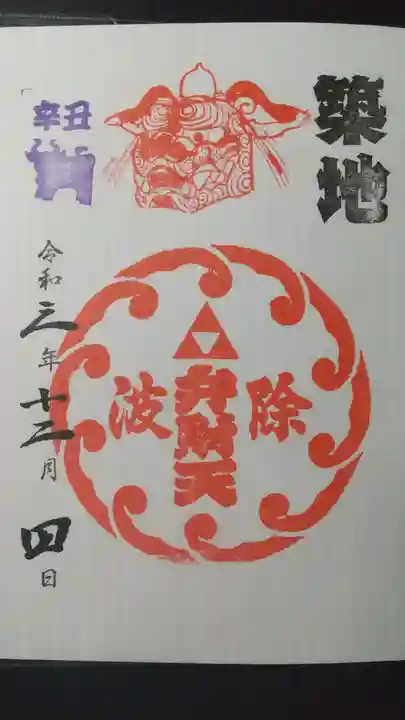 築地
除
弁財天
波
辛丑
令和三年十二月四日